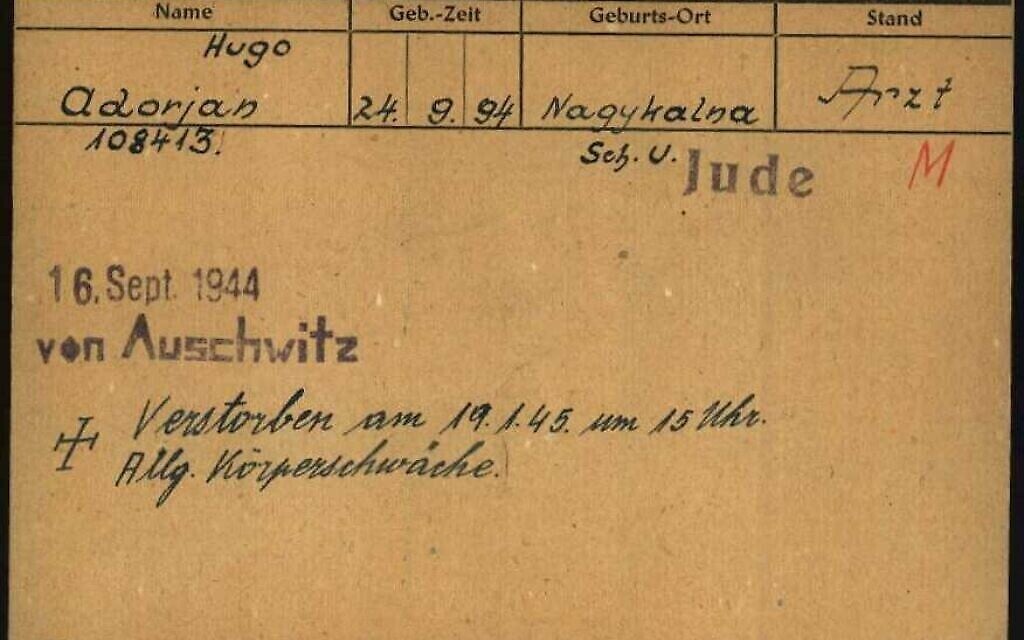 Name Geb.-Zeit Geburts-Ort Stand
Hugo
Adorjan 24. 9. 94 Nagykalna Arzt
108413. Sch. U. Jude M
16. Sept. 1944
von Auschwitz
Verstorben am 19.1.45. um 15 Uhr.
Allg. Körperschwäche.